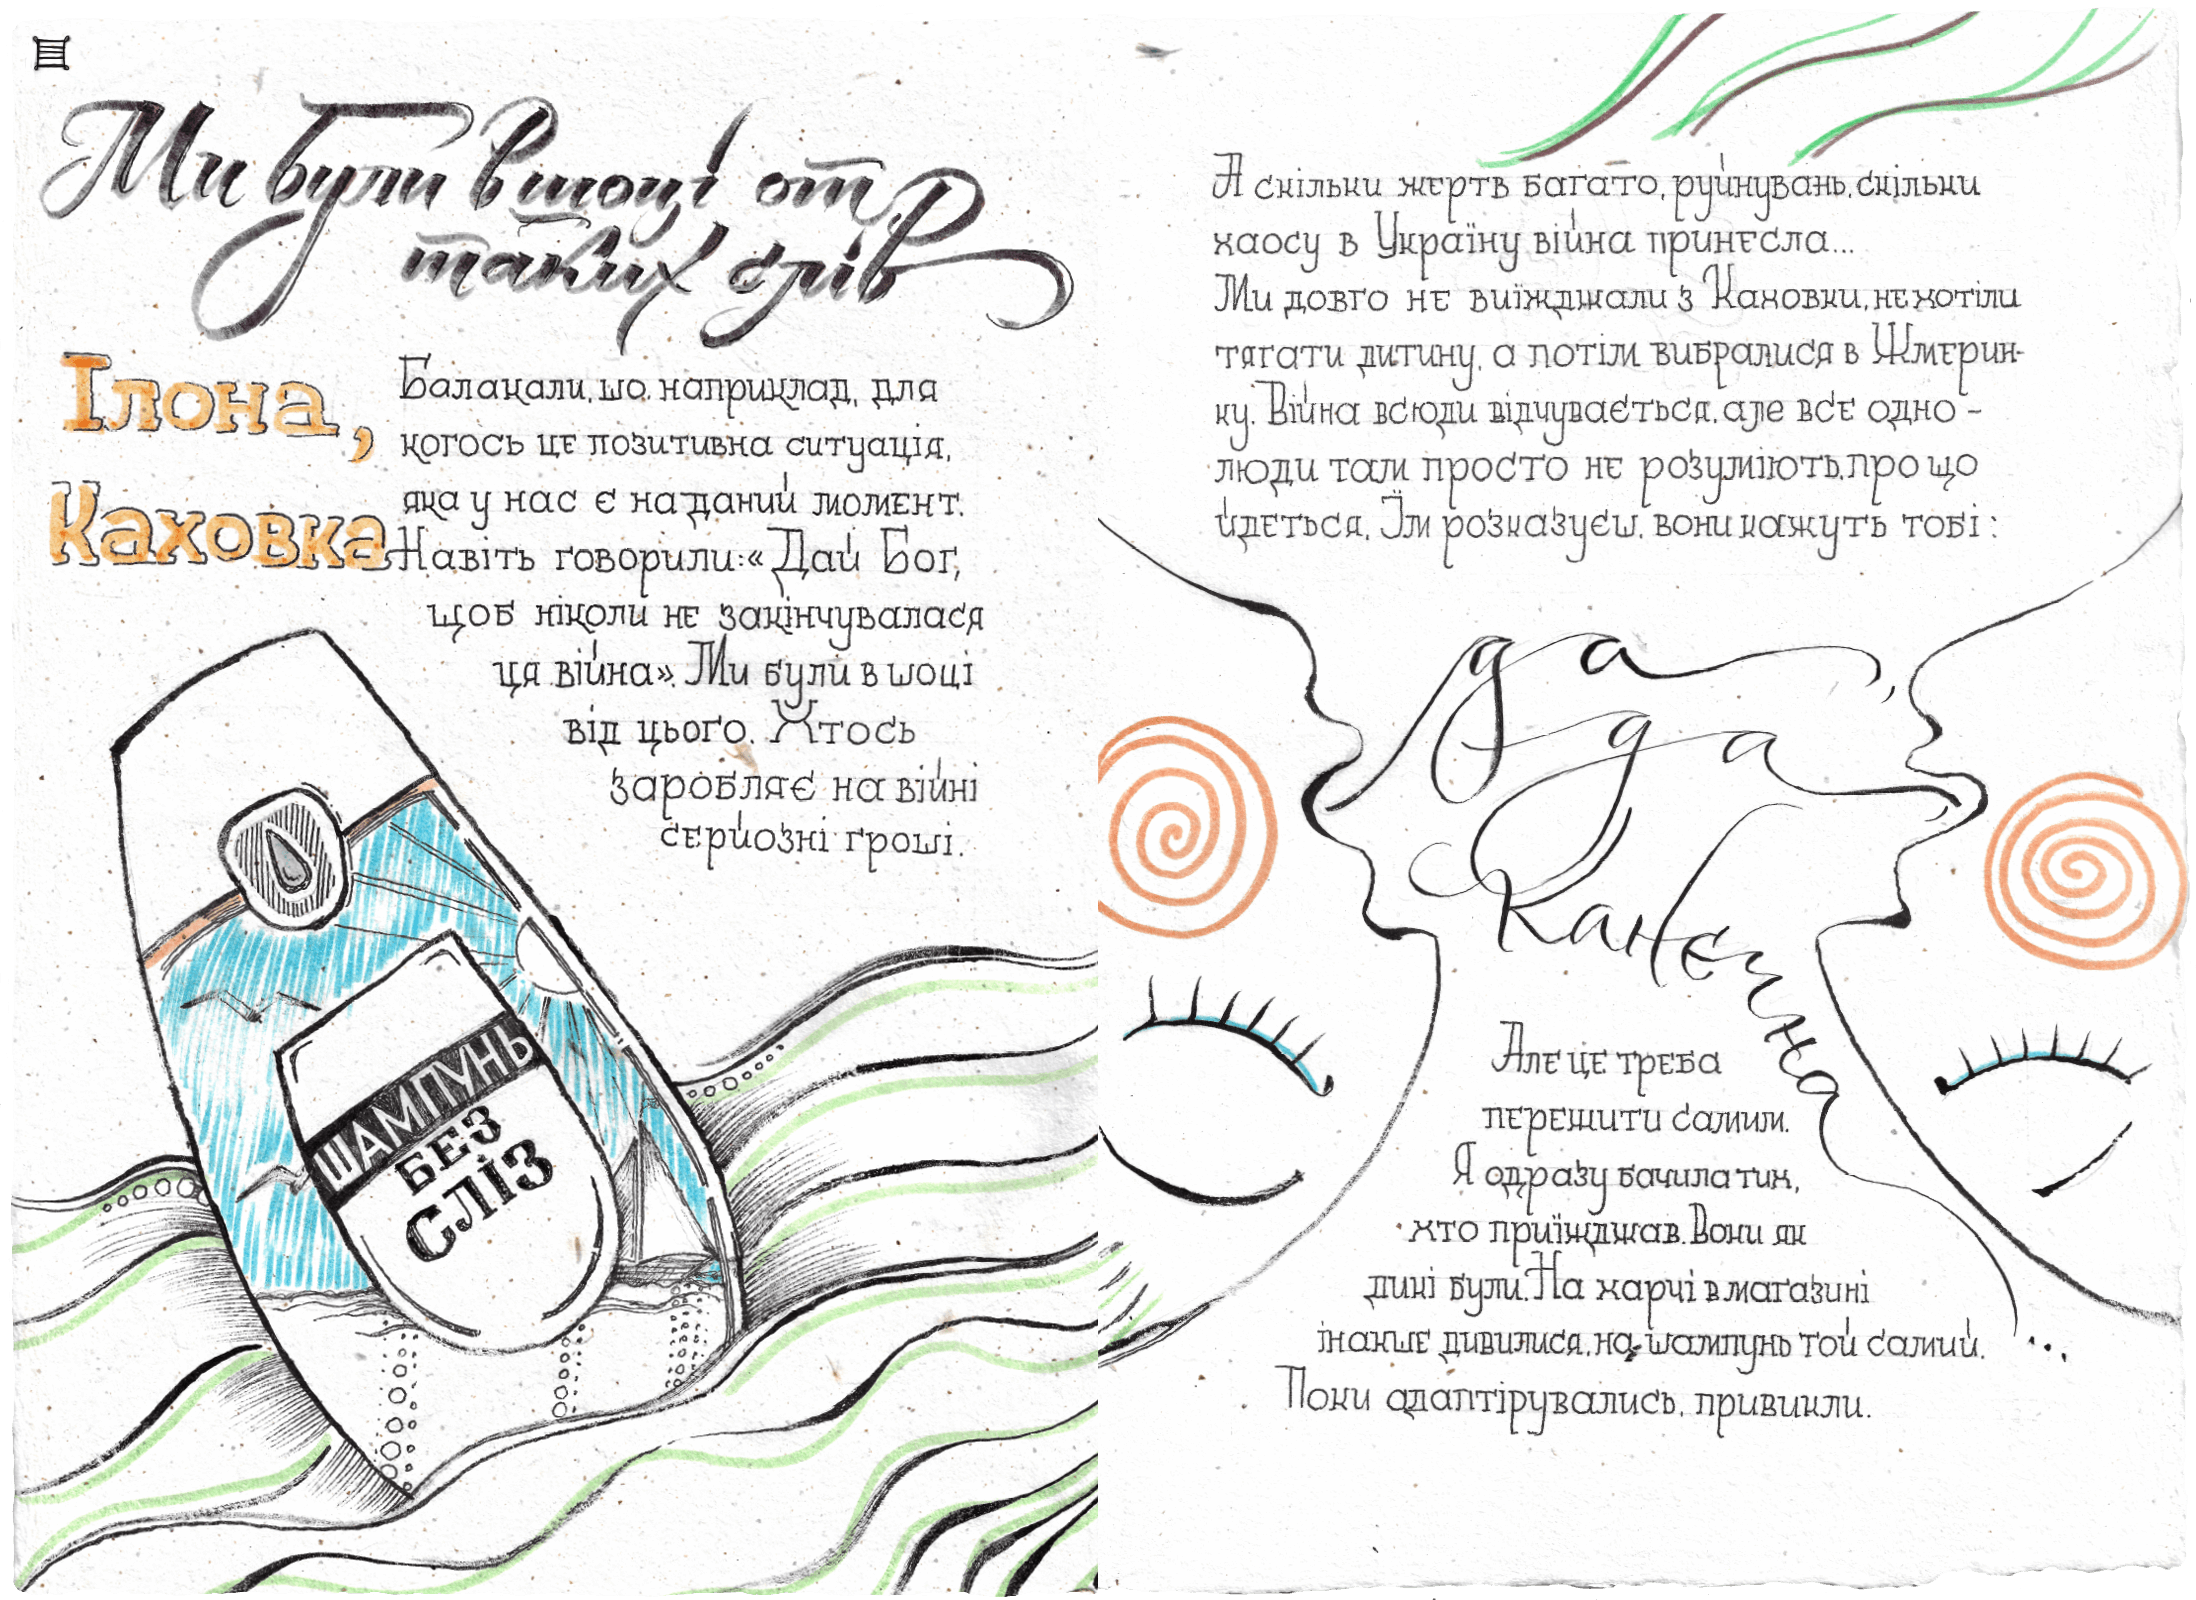 Ми були в шоці от
таких слів
Ілона,
Каховка
Балакали, шо, наприклад, для
когось це позитивна ситуація,
яка у нас є на даний момент.
Навіть говорили: «Дай Бог,
щоб ніколи не закінчувалася
ця війна». Ми були в шоці
від цього. Хтось
заробляє на війні
серйозні гроші.
ШАМПУНЬ
БЕЗ
СЛІЗ
А скільки жертв багато, руйнувань, скільки
хаосу в Україну війна принесла...
Ми довго не виїжджали з Каховки, не хотіли
тягати дитину, а потім вибралися в Жмерин-
ку. Війна всюди відчувається, але всє одно -
люди там просто не розуміють, про що
йдеться. Їм розказуєш, вони кажуть тобі:
да,
да
канєшна
Але це треба
пережити самим.
Я одразу бачила тих,
хто приїжджав. Вони як
дикі були. На харчі в магазині
інакше дивилися, на шампунь той самий.
Поки адаптірувались, привикли.
...